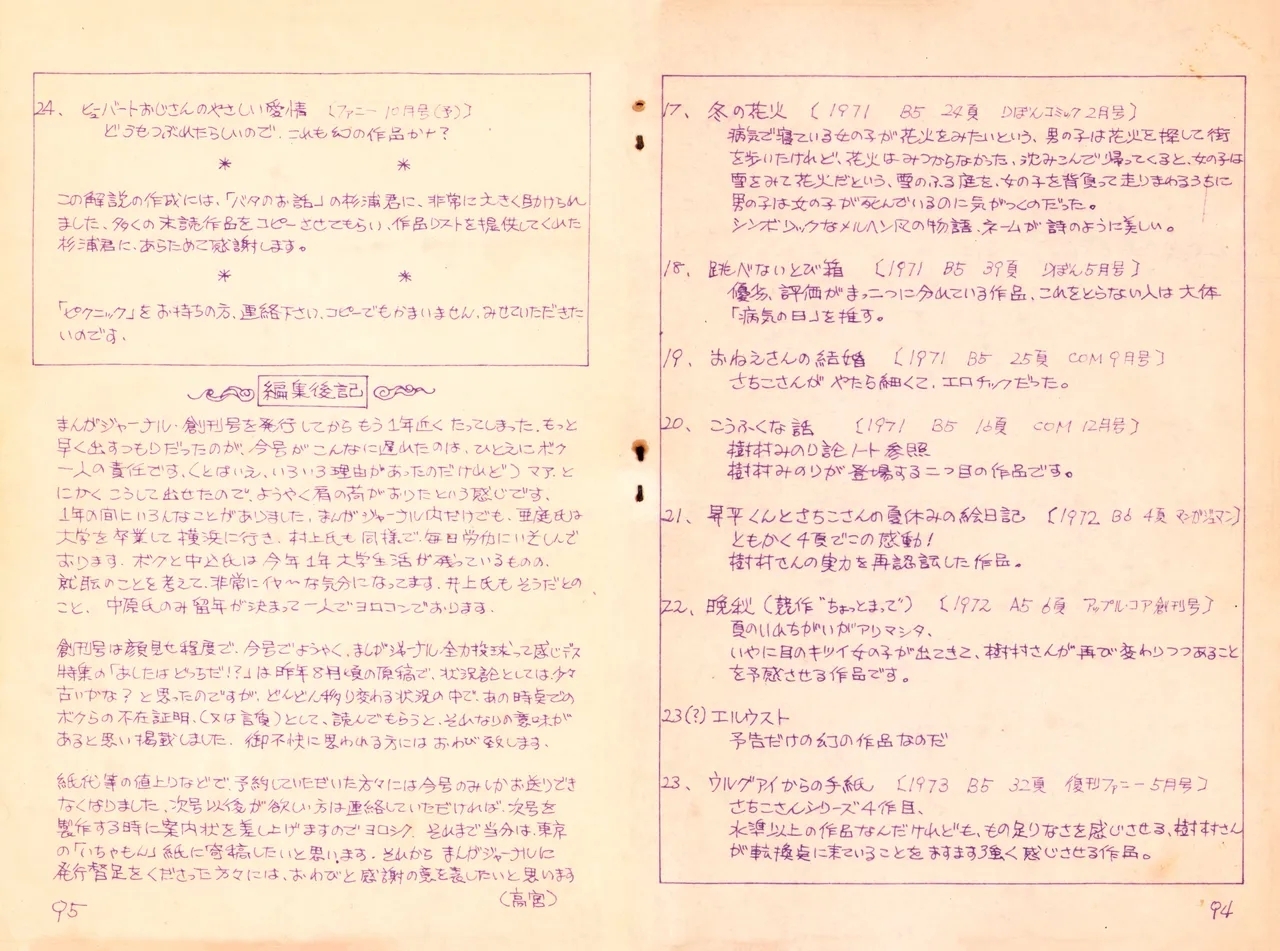 17、 冬の花火 〔1971 B5 24頁 りぼんコミック2月号〕
病気で寝ている女の子が花火をみたいという、男の子は花火を探して街
を歩いたけれど、花火はみつからなかった、沈みこんで帰ってくると、女の子は
雪をみて花火だという、雪のふる庭を、女の子を背負って走りまわるうちに
男の子は女の子が死んでいるのに気がつくのだった。
シンボリックなメルヘン風の物語、ネームが詩のように美しい。
18、 跳べないとび箱 〔1971 B5 39頁 りぼん5月号〕
優劣、評価がまっ二つに分れている作品、これをとらない人は大体
「病気の日」を推す。
19、 おねえさんの結婚 〔1971 B5 25頁 COM9月号〕
さちこさんがやたら細くて、エロチックだった。
20、 こうふくな話 〔1971 B5 16頁 COM12月号〕
樹村みのり論ノート参照
樹村みのりが登場する二つ目の作品です。
21、 昇平くんとさちこさんの夏休みの絵日記 〔1972 B6 4頁 マンガジュマン〕
ともかく4頁でこの感動!
樹村さんの実力を再認識した作品。
22、 晩秋(競作“ちょっとまって”) 〔1972 A5 6頁 アップル・コア創刊号〕
夏のいれちがいがアリマシタ、
いやに目のキツイ女の子が出てきて、樹村さんが再び変わりつつあること
を予感させる作品です。
23(?)エルウスト
予告だけの幻の作品なのだ
23、 ウルグアイからの手紙 〔1973 B5 32頁 復刊ファニー5月号〕
さちこさんシリーズ4作目、
水準以上の作品なんだけれども、もの足りなさを感じさせる、樹村さん
が転換点に来ていることをますます強く感じさせる作品。
94
24、 ヒューバートおじさんのやさしい愛情 〔ファニー10月号(予)〕
どうもつぶれたらしいので、これも幻の作品かナ?
* *
この解説の作成には、「バタのお話」の杉浦君に、非常に大きく助けられ
ました、多くの未読作品をコピーさせてもらい、作品リストを提供してくれた
杉浦君に、あらためて感謝します。
* *
「ピクニック」をお持ちの方、連絡下さい、コピーでもかまいません、みせていただきた
いのです、
編集後記
まんがジャーナル・創刊号を発行してからもう1年近くたってしまった、もっと
早く出すつもりだったのが、今号がこんなに遅れたのは、ひとえにボク
一人の責任です、(とはいえ、いろいろ理由があったのだけれど)マア、と
にかくこうして出せたので、ようやく肩の荷がおりたという感じです、
1年の間にいろんなことがありました、まんがジャーナル内だけでも、亜庭氏は
大学を卒業して横浜に行き、村上氏も同様で、毎日労働にいそしんで
おります、ボクと中込氏は今年1年大学生活が残っているものの、
就転のことを考えて、非常にイヤ〜な気分になってます、井上氏もそうだとの
こと、中原氏のみ留年が決まって一人でヨロコンでおります、
創刊号は顔見せ程度で、今号でようやく、まんがジャーナル全力投球って感じデス
特集の「あしたはどっちだ!?」は昨年8月頃の原稿で、状況論としては少々
古いかな?と思ったのですが、どんどん移り変わる状況の中で、あの時点での
ボクらの不在証明、(又は言負)として、読んでもらうと、それなりの意味が
あると思い掲載しました、御不快に思われる方にはおわび致します、
紙代等の値上りなどで、予約していただいた方々には今号のみしかお送りでき
なくなりました、次号以後が欲しい方は連絡していただければ、次号を
製作する時に案内状を差し上げますのでヨロシク、それまで当分は、東京
の「いちゃもん」紙に寄稿したいと思います、それからまんがジャーナルに
発行督促をくださった方々には、おわびと感謝の意を表したいと思います
(高宮)
95